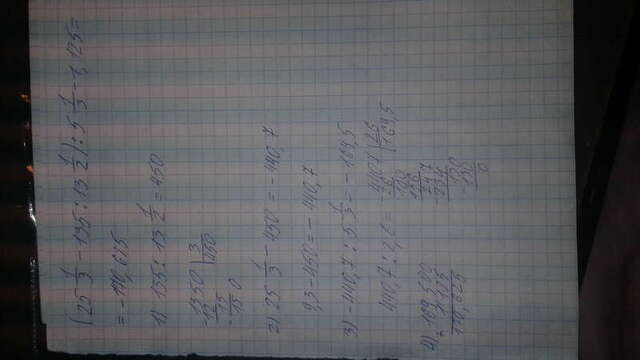 (25 1/3 - 135 : 13 1/2) : 5 1/3 - 1,125 =
= - 170,625
1) 135 : 13 1/2 = 450
1350 | 3
12 | 450
15
15 0
2) 25 1/3 - 450 = - 440,7
9,3 - 450 = - 440,7
3) - 440,7 : 5 1/3 = - 169,5
440,7 : 2,6 = 4407 | 26
26 | 169,5
180
156
247
234
130
130
0
4) 169,500
+ 1,125
170,625